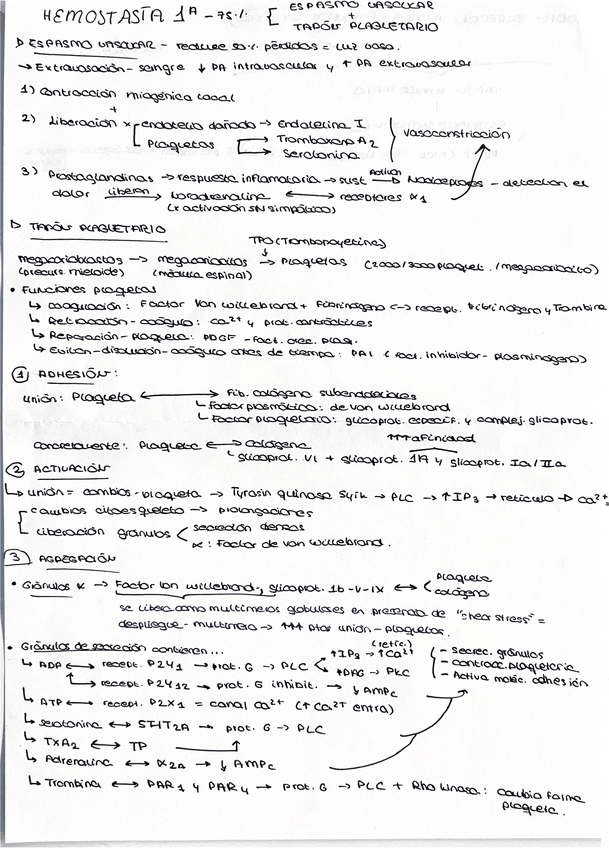 HEMOSTASIA 1ª - 75.% [ ESPASMO VASCULAR
+
TAPÓN PLAQUETARIO
ESPASMO VASCULAR - reduce pérdidas = luz vaso.
→ Extravasación - sangre ↓ PA intravascular y ↑ PA extravascular
1) Contracción miogénica local
+
2) Liberación x endotelio dañado → Endotelina I
Plaquetas → Tromboxano A2
→ Serotonina
vasoconstricción
3) Prostaglandinas → respuesta inflamatoria → sust Activan → Nociceptores - detectan el
dolor liberan → Noradrenalina ↔ receptores α1
(x activación SN simpático)
TAPÓN PLAQUETARIO
TPO (Trombopoyetina)
megacarioblastos → megacariocitos → Plaquetas (2000/3000 plaquet. /megacariocito)
(precurs. mieloide) (médula espinal)
• Funciones plaquetas
↳ coagulación: Factor Von Willebrand + Fibrinógeno ↔ recept. fibrinógeno y Trombina
↳ Retracción - coágulo: Ca²⁺ y prot. contráctiles
↳ Reparación - plaqueta: PDGF - fact. crec. plaq.
↳ Evitan - disolución - coágulo antes de tiempo: PAI (fact. inhibidor - plasminógeno)
① ADHESIÓN:
Unión: Plaqueta ↔ Fib. colágeno subendoteliales
↳ Factor plasmático: de von Willebrand
↳ Factor plaquetario: glicoprot. específ. y complej. glicoprot.
↑↑↑ afinidad
Concretamente: Plaqueta ↔ Colágeno
glicoprot. VI + glicoprot. 1A y glicoprot. Ia/IIa
② ACTIVACIÓN
↳ unión = cambios - plaqueta → Tyrosin quinasa Syk → PLC → ↑IP3 → retículo → Ca²⁺
cambios citoesqueleto → prolongaciones
liberación gránulos < secreción densos
α: Factor de von Willebrand.
③ AGREGACIÓN
• Gránulos α → Factor Von Willebrand, glicoprot. 1b-V-IX ↔ < plaqueta
colágeno
se libera como multímeros globulares en presencia de "shear stress" =
despliegue - multímero → ↑↑↑ ptos unión - plaquetas.
• Gránulos de secreción contienen...
↳ ADP ↔ recept. P2Y1 → prot. G → PLC < ↑IP3 → ↑Ca²⁺ (retíc.)
↑DAG → PKC
↳ recept. P2Y12 → prot. G inhibit. → ↓ AMPc
- secrec. gránulos
- contracc. plaquetaria
- Activa moléc. adhesión
↳ ATP ↔ recept. P2X1 = canal Ca²⁺ (↑Ca²⁺ entra)
↳ Serotonina ↔ 5HT2A → prot. G → PLC
↳ TXA2 ↔ TP
↳ Adrenalina ↔ α2A → ↓ AMPc
↳ Trombina ↔ PAR1 y PAR4 → prot. G → PLC + Rho kinasa: cambio forma
plaqueta.